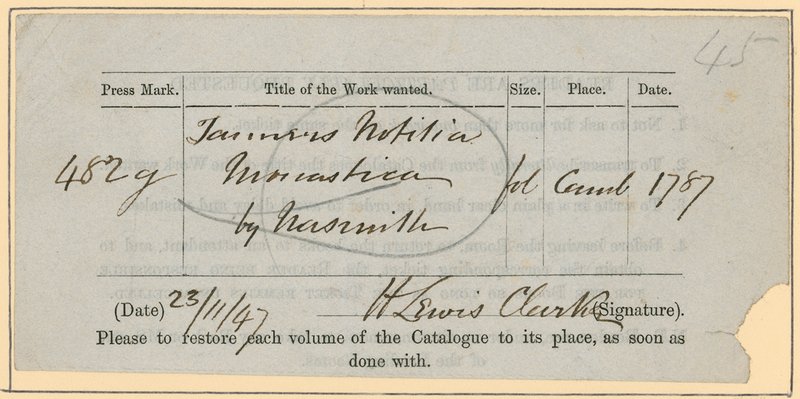 45
Press Mark. Title of the Work wanted. Size. Place. Date.
Tanners Notitia
482 g Monastica fol Camb 1787
by Nasmith
(Date) 23/11/47 H Lewis Clarke (Signature).
Please to restore each volume of the Catalogue to its place, as soon as
done with.